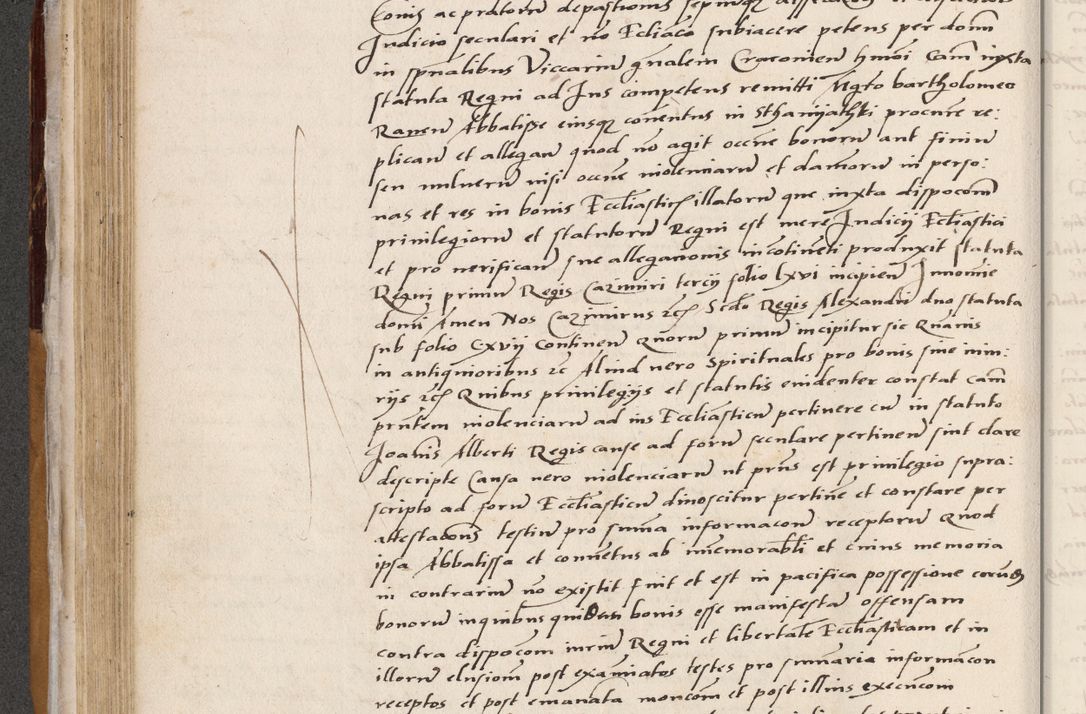 Iudicio seculari et nō Ecliāco subiacere petens per dom̄
in spn̄alibus Viccariū gn̄alem Cracovien̄ hmōi Cam̄ iuxta
statuta Regni ad Ius competens remitti Mgr̄o bartholomeo
Rapen̄ Abbatisse eiusq̨ conventus in Sthaniyathki procur̄e re:
plican̄ et allegan̄ quod nō agit occn̄e bonorū aut finiū
seu nulnerū nisi occn̄e violenciarū et damnorū in perso:
nas et res in bonis Eccl̄iasticꝭ illatorū que iuxta dispocōm̄
privilegiorū et statutorū Regni est mere Iudicij Eccl̄iastici
et pro verifican̄ sue alleganonis incōtinēti produxit statuta
Regni primū Regis Cazimiri tercij folio lxvi incipien̄ In nomīe
domī Amen Nos Cazimirus zcꝭ Scdō Regis Alexandri duo statuta
sub folio Cxvij Continen̄ Quorū primū incipitur sic Quāvis
in antiquioribus zc Aliud vero Spirituales pro bonis sive inim:
rijs zcꝭ Quibus privilegijs et statutis evidenter constat cam̄
prn̄tem violenciarū ad ius Eccl̄iasticū pertinere cū in statuto
Ioan̄is Alberti Regis cause ad forū seculare pertinen̄ sint clare
descripte Causa vero violenciarū ut prn̄s est privilegio supra:
scripto ad forū Eccl̄iasticū dinoscitur pertin̄e et constare per
attestacōn̄s testiū pro summa informacōn̄ receptorū Quod
ipsa Abbatissa et conventus ab immemorabl̄i et cuius memoria
in contrariū nō existit fuit et est in pacifica possessione eorud̄
bonorū in quibus quidem bonis esse manifestā offensam
contra dispocōm̄ iuriū Regni et libertatē Eccl̄iasticam et in
illorū elusiom̄ post examīatos testes pro summaria informācon
receptos et post emanata moncōm̄ et post illius execucōm̄